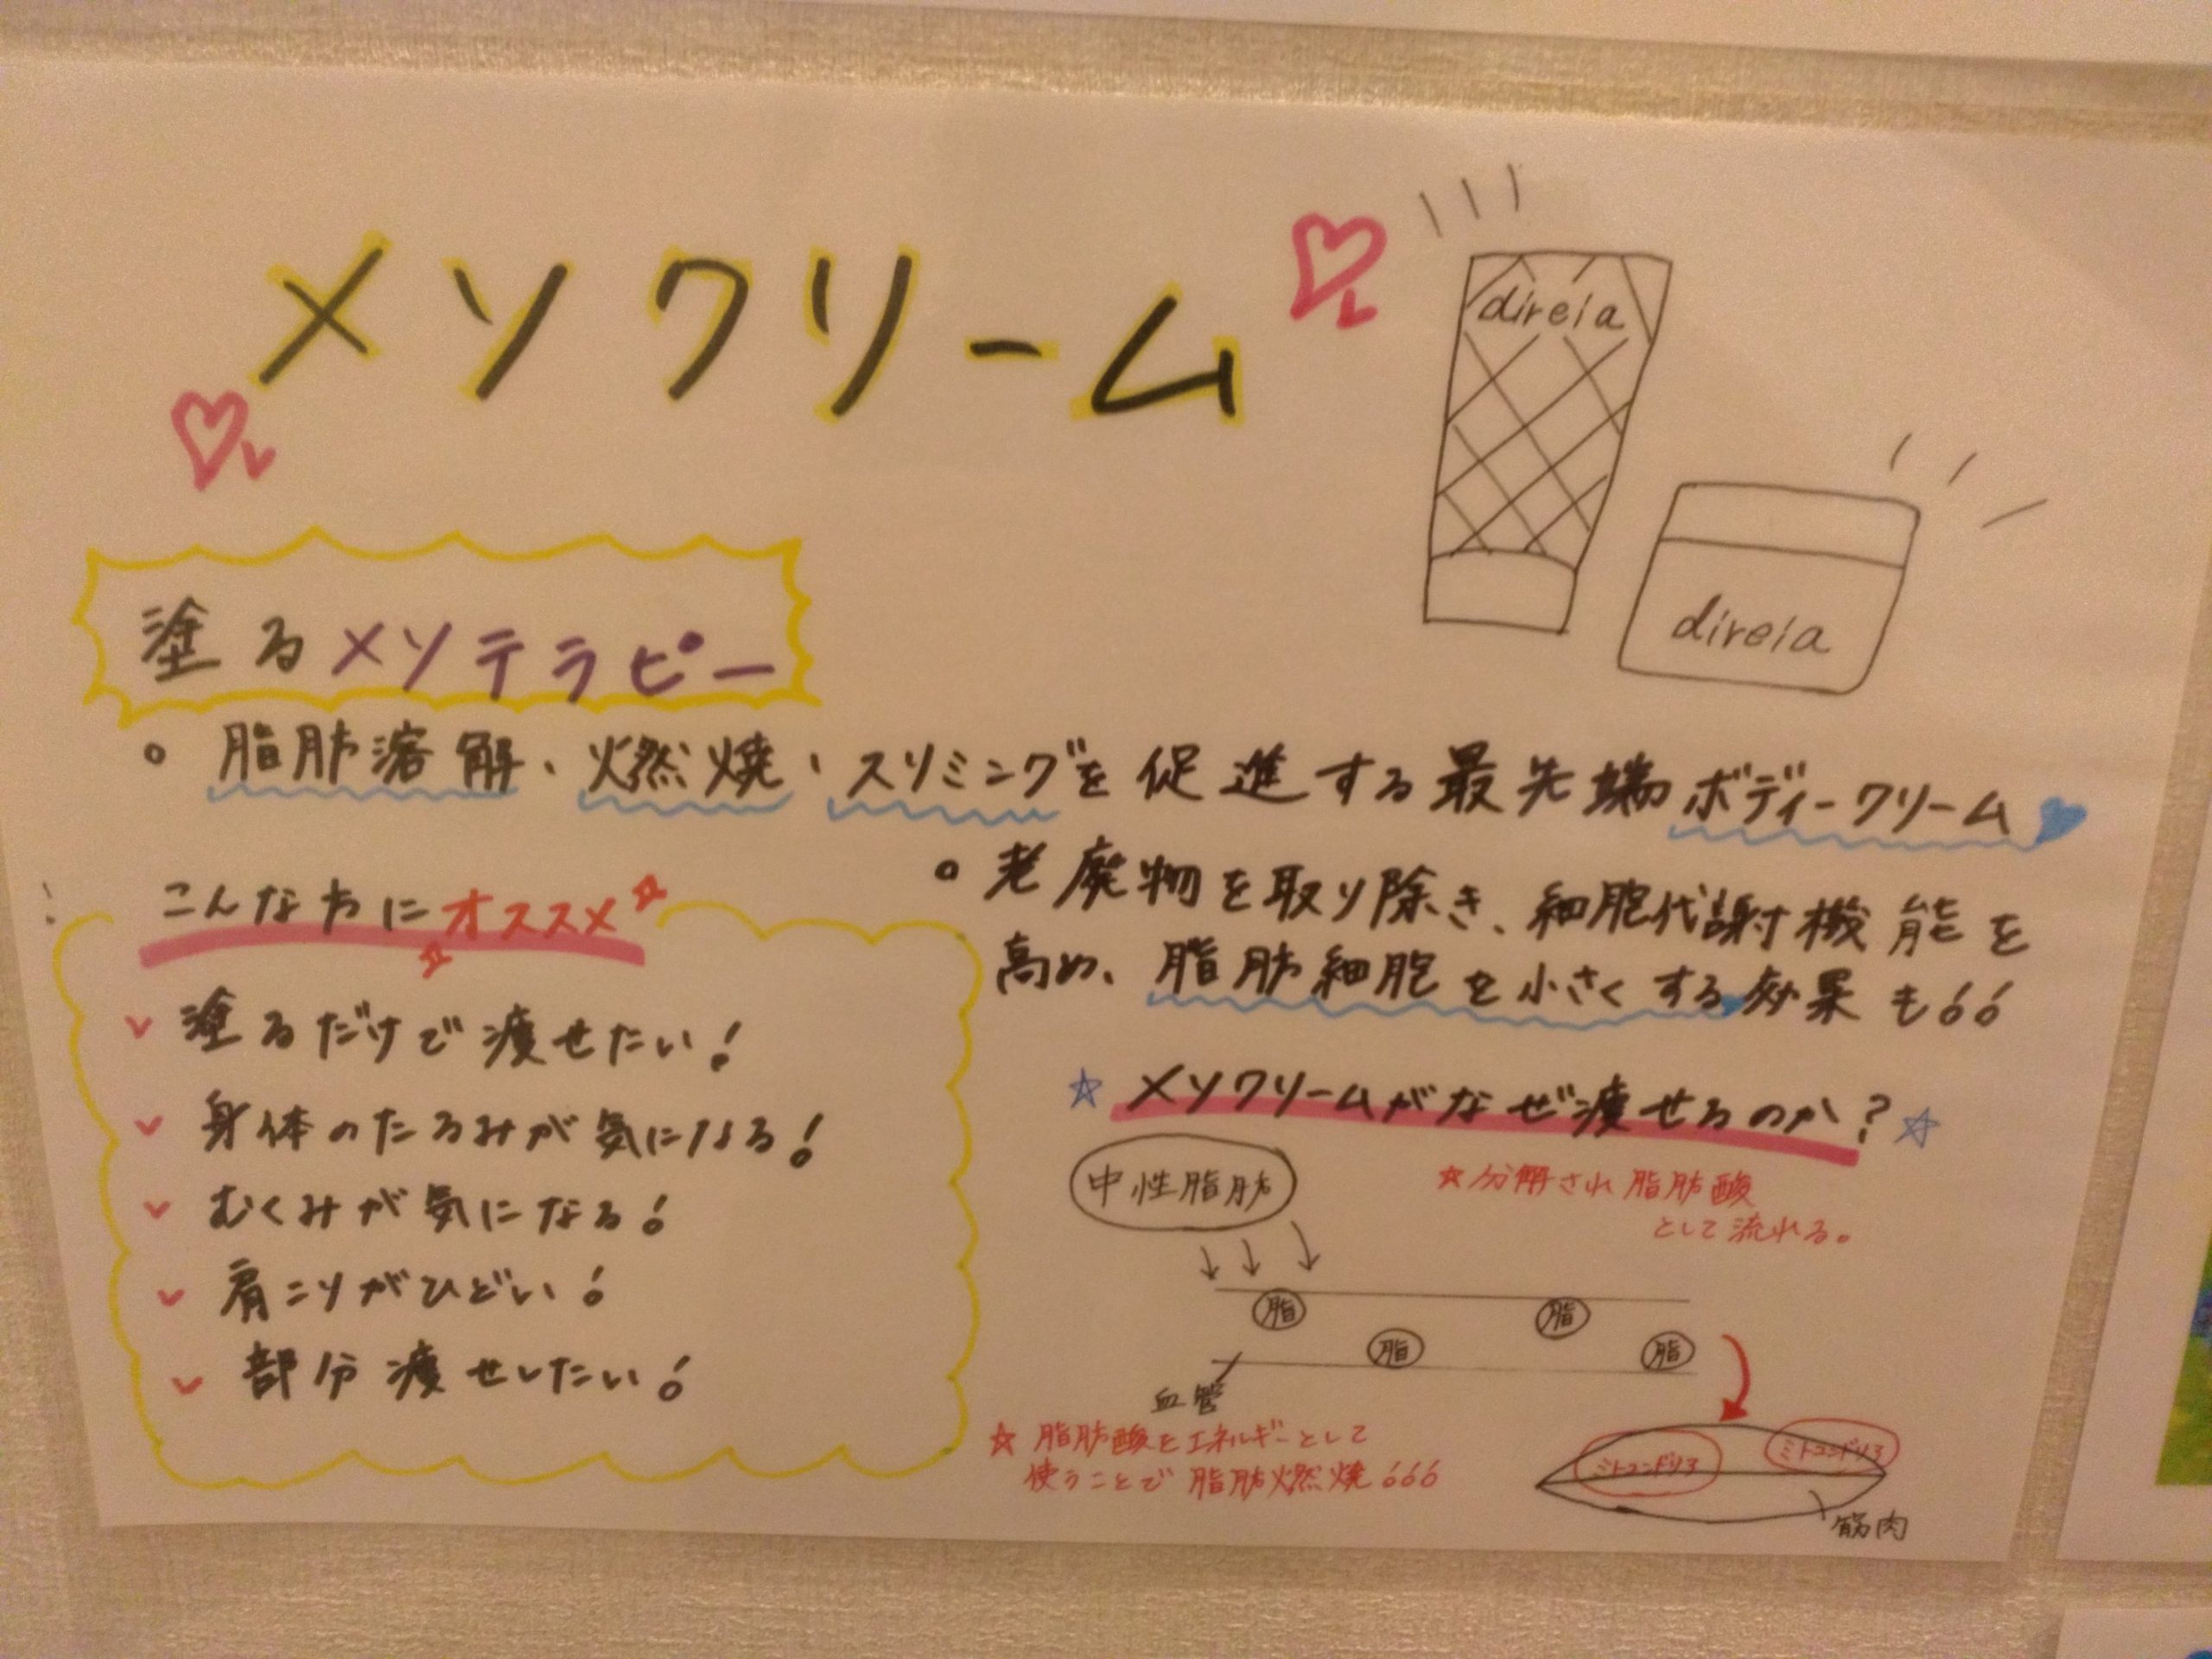 メソクリーム
direia
direia
塗るメソテラピー
。脂肪溶解、燃焼、スリミングを促進する最先端ボディークリーム
。老廃物を取り除き、細胞代謝機能を
高め、脂肪細胞を小さくする効果も!!
こんな方にオススメ
塗るだけで痩せたい!
身体のたるみが気になる!
むくみが気になる!
肩こりがひどい!
部分痩せしたい!
☆メソクリームがなぜ痩せるのか?☆
中性脂肪
☆分解され脂肪酸
として流れる。
脂 脂
脂 脂
血管
☆脂肪酸をエネルギーとして
使うことで脂肪燃焼!!!
ミトコンドリア ミトコンドリア
筋肉